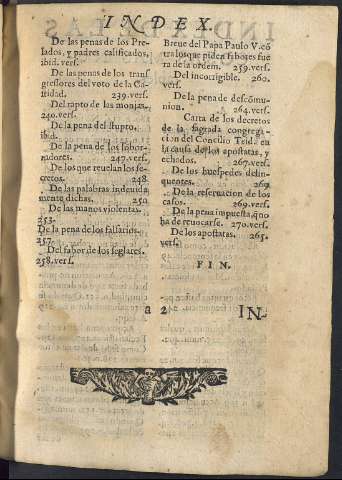 INDEX.
De las penas de los Pre
lados, y padres calificados.
ibid. vers.
De las penas de los trans
gressores del voto de la Ca
stidad. 239. vers.
Del rapto de las monjas.
240. vers.
De la pena del stupro.
ibid.
De la pena de los sobor-
nadores. 247. vers.
De los que reuelan los se-
cretos. 248.
De las palabras indeuida
mente dichas. 250
De las manos violentas.
253.
De la pena de los falsarios.
257.
Del fabor de los seglares.
258. vers.
Breue del Papa Paulo V. cō
tra los que piden fabores fue
ra de la orden. 259. vers.
Del incorrigible. 260.
vers.
De la pena de descōmu-
nion. 264. vers.
Carta de los decretos
de la sagrada congrega-
cion del Concilio Trid. en
la causa de los apostatas, y
echados. 267. vers.
De los huespedes delin-
quentes. 269
De la reseruacion de los
casos. 269. vers.
De la pena impuesta, q̃ no
ha de reuocarse. 270. vers.
De los apostatas. 265.
vers.
FIN.
a 2 IN-